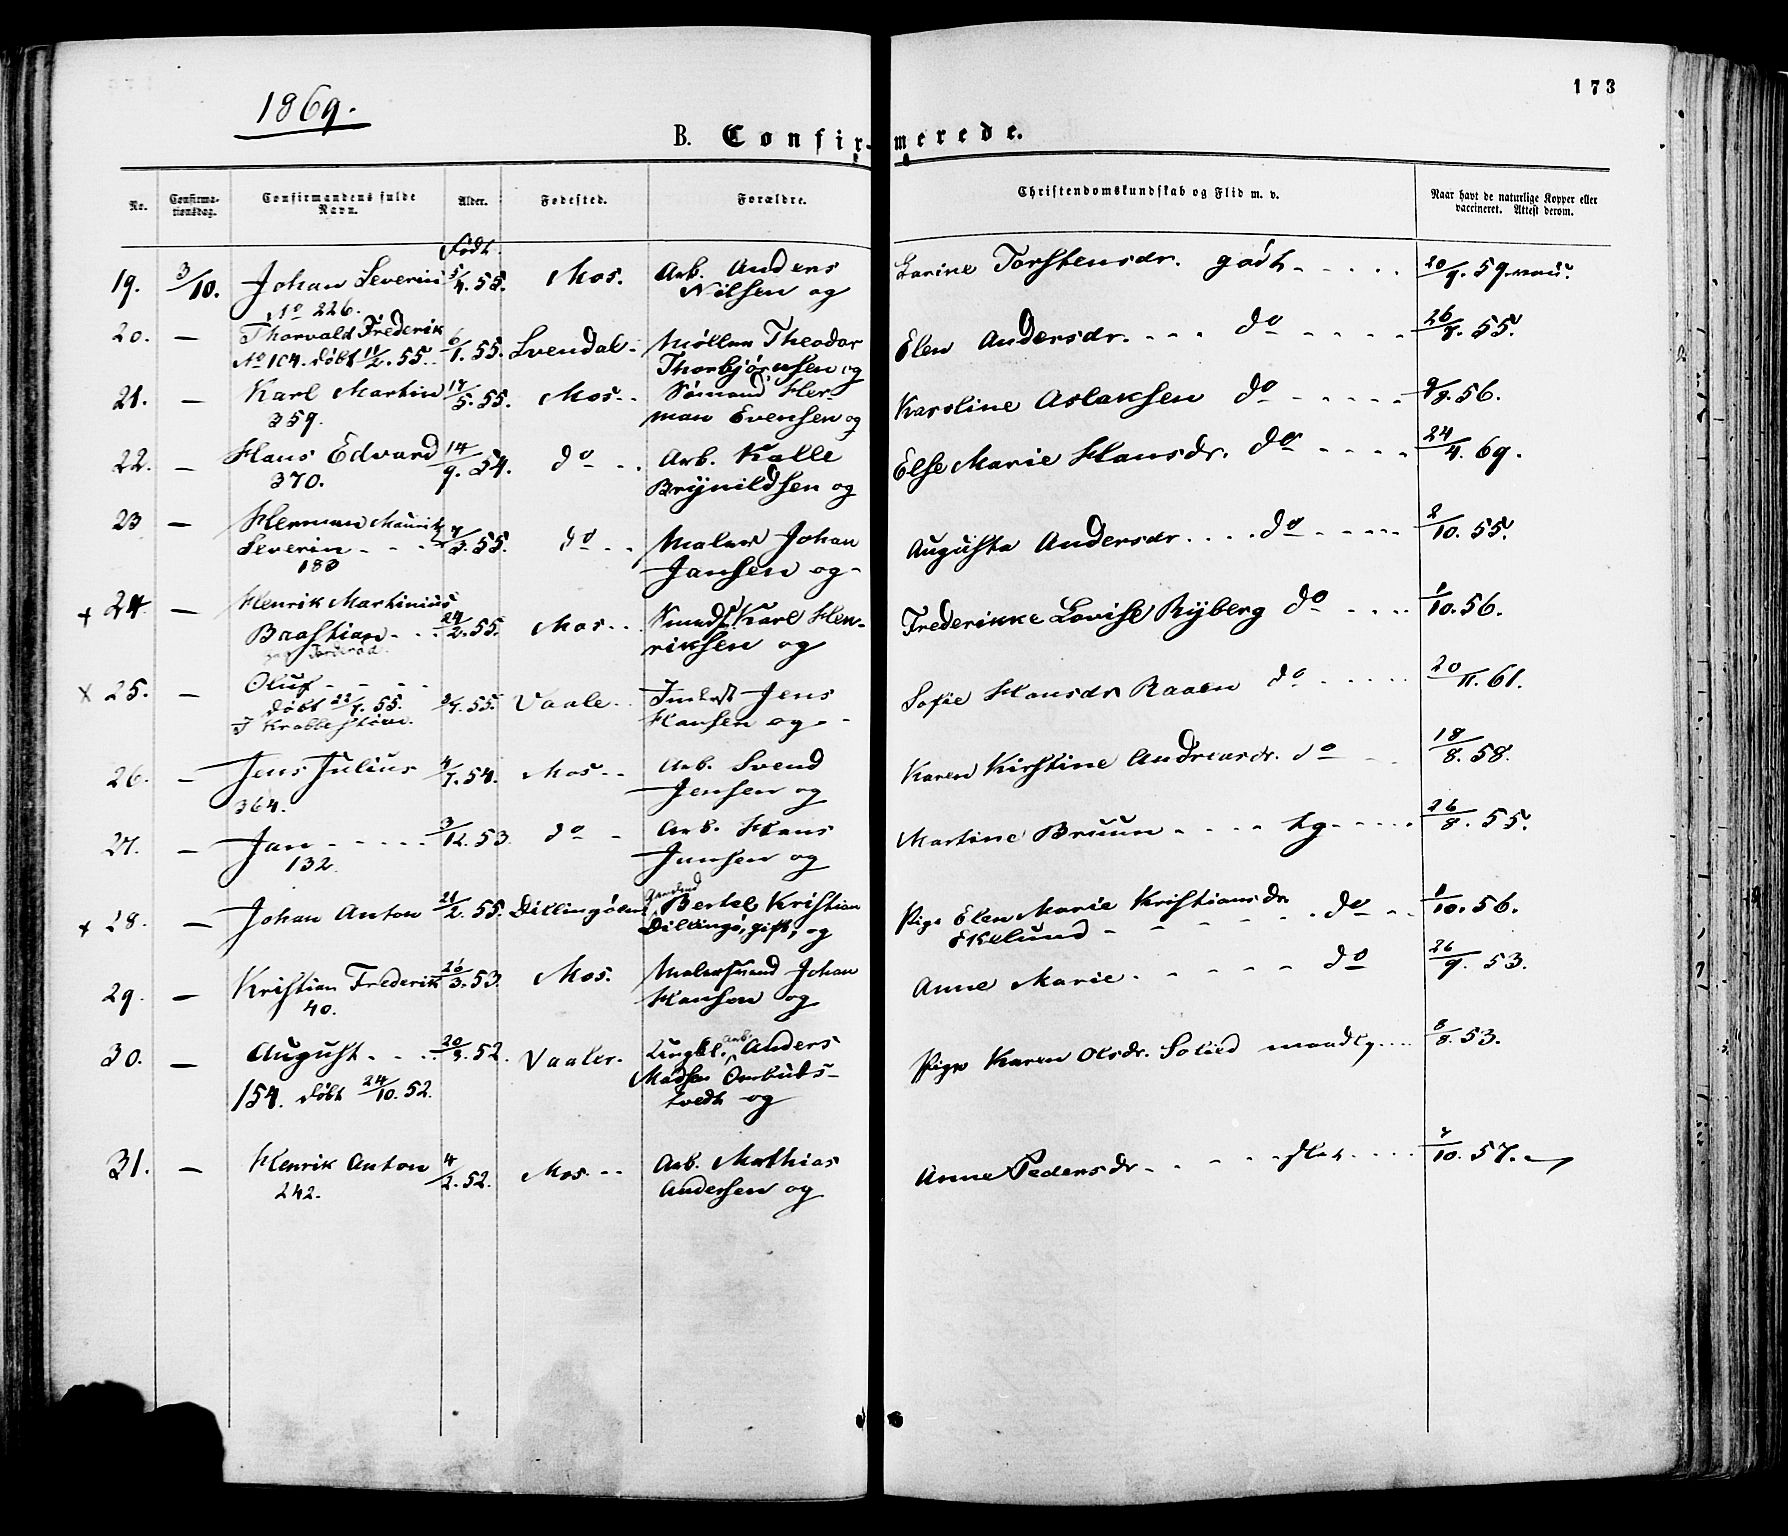 173
1869.
B. Confirmerede.
Nr.
Confirma-
tionsdag.
Confirmandens fulde
Navn.
Alder.
Fødested.
Forældre.
Christendomskundskab og Flid m. v.
Naar havt de naturlige Kopper eller
vaccineret. Attest derom.
Født.
19. 3/10. Johan Severin 5/4.55. Mos. Arb. Anders Larine Torstensdr. godt 20/9.59.
No 226. Nilsen og
20. — Thorvald Frederik 6/1.55. Svendal. Møller Theodor Elen Andersdr. do 26/8.55.
No 104. døbt 11/2.55. Thorbjørnsen og
21. — Karl Martin 17/5.55. Mos. Sømand Her- Karoline Aslaksen do 9/8.56.
359. man Evensen og
22. — Hans Edvard 14/9.54. do Arb. Kalle Else Marie Hansdr. do 24/4.69.
370. Brynildsen og
23 — Herman Maurits 7/3.55. do Maler Johan Augusta Andersdr. do 2/10.55.
Severin Jansen og
183
+ 24. — Henrik Martinius
Bastian 24/2.55. Mos. Smeds. Karl Hen- Frederikke Lovise Ryberg do 1/10.56.
riksen og
x 25. — Oluf 55. Vaale. Inderst Jens Sofie Hansdr Raaen do 20/11.61.
døbt 22/7.55. Hansen og
I Krabbestøen.
26. — Jens Julius 4/7.54. Mos. Arb. Svend Karen Kirstine Andreasdr. do 18/8.58.
364. Jensen og
27. — Jan 3/12.53. do Arb. Hans Martine Bruun tg. 26/8.55.
132. Jansen og
+ 28. — Johan Anton 21/2.55. Dillingøen Bertel Kristian Pige Elen Marie Kristiansdr do 1/10.56.
Dillingø, gift, og Ekelund
29. — Kristian Frederik 26/3.53. Mos. Johan Anne Marie do 26/9.53.
40. Hansen og
30. — August 20/9.52. Vaaler. Ungkl. Arb. Anders Pige Karen Olsdr. Solid maadlg. 8/8.53.
154. døbt 24/10.52. Madsen Ombuds-
tvedt og
31. — Henrik Anton 4/2.52. Mos. Arb. Mathias Anne Pedersdr 7/10.57.
242. Andersen og